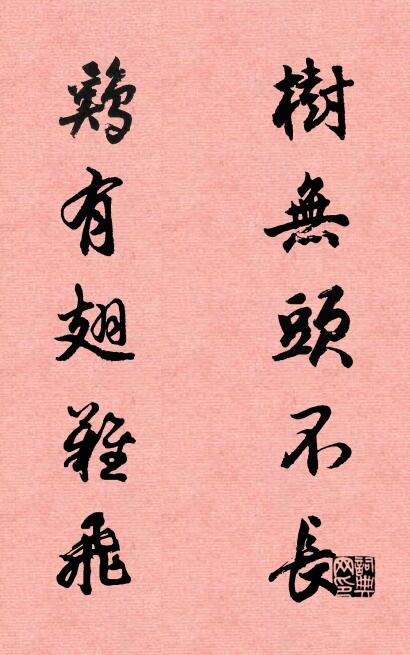 樹無頭不長
鷄有翅難飛
詞典
网印